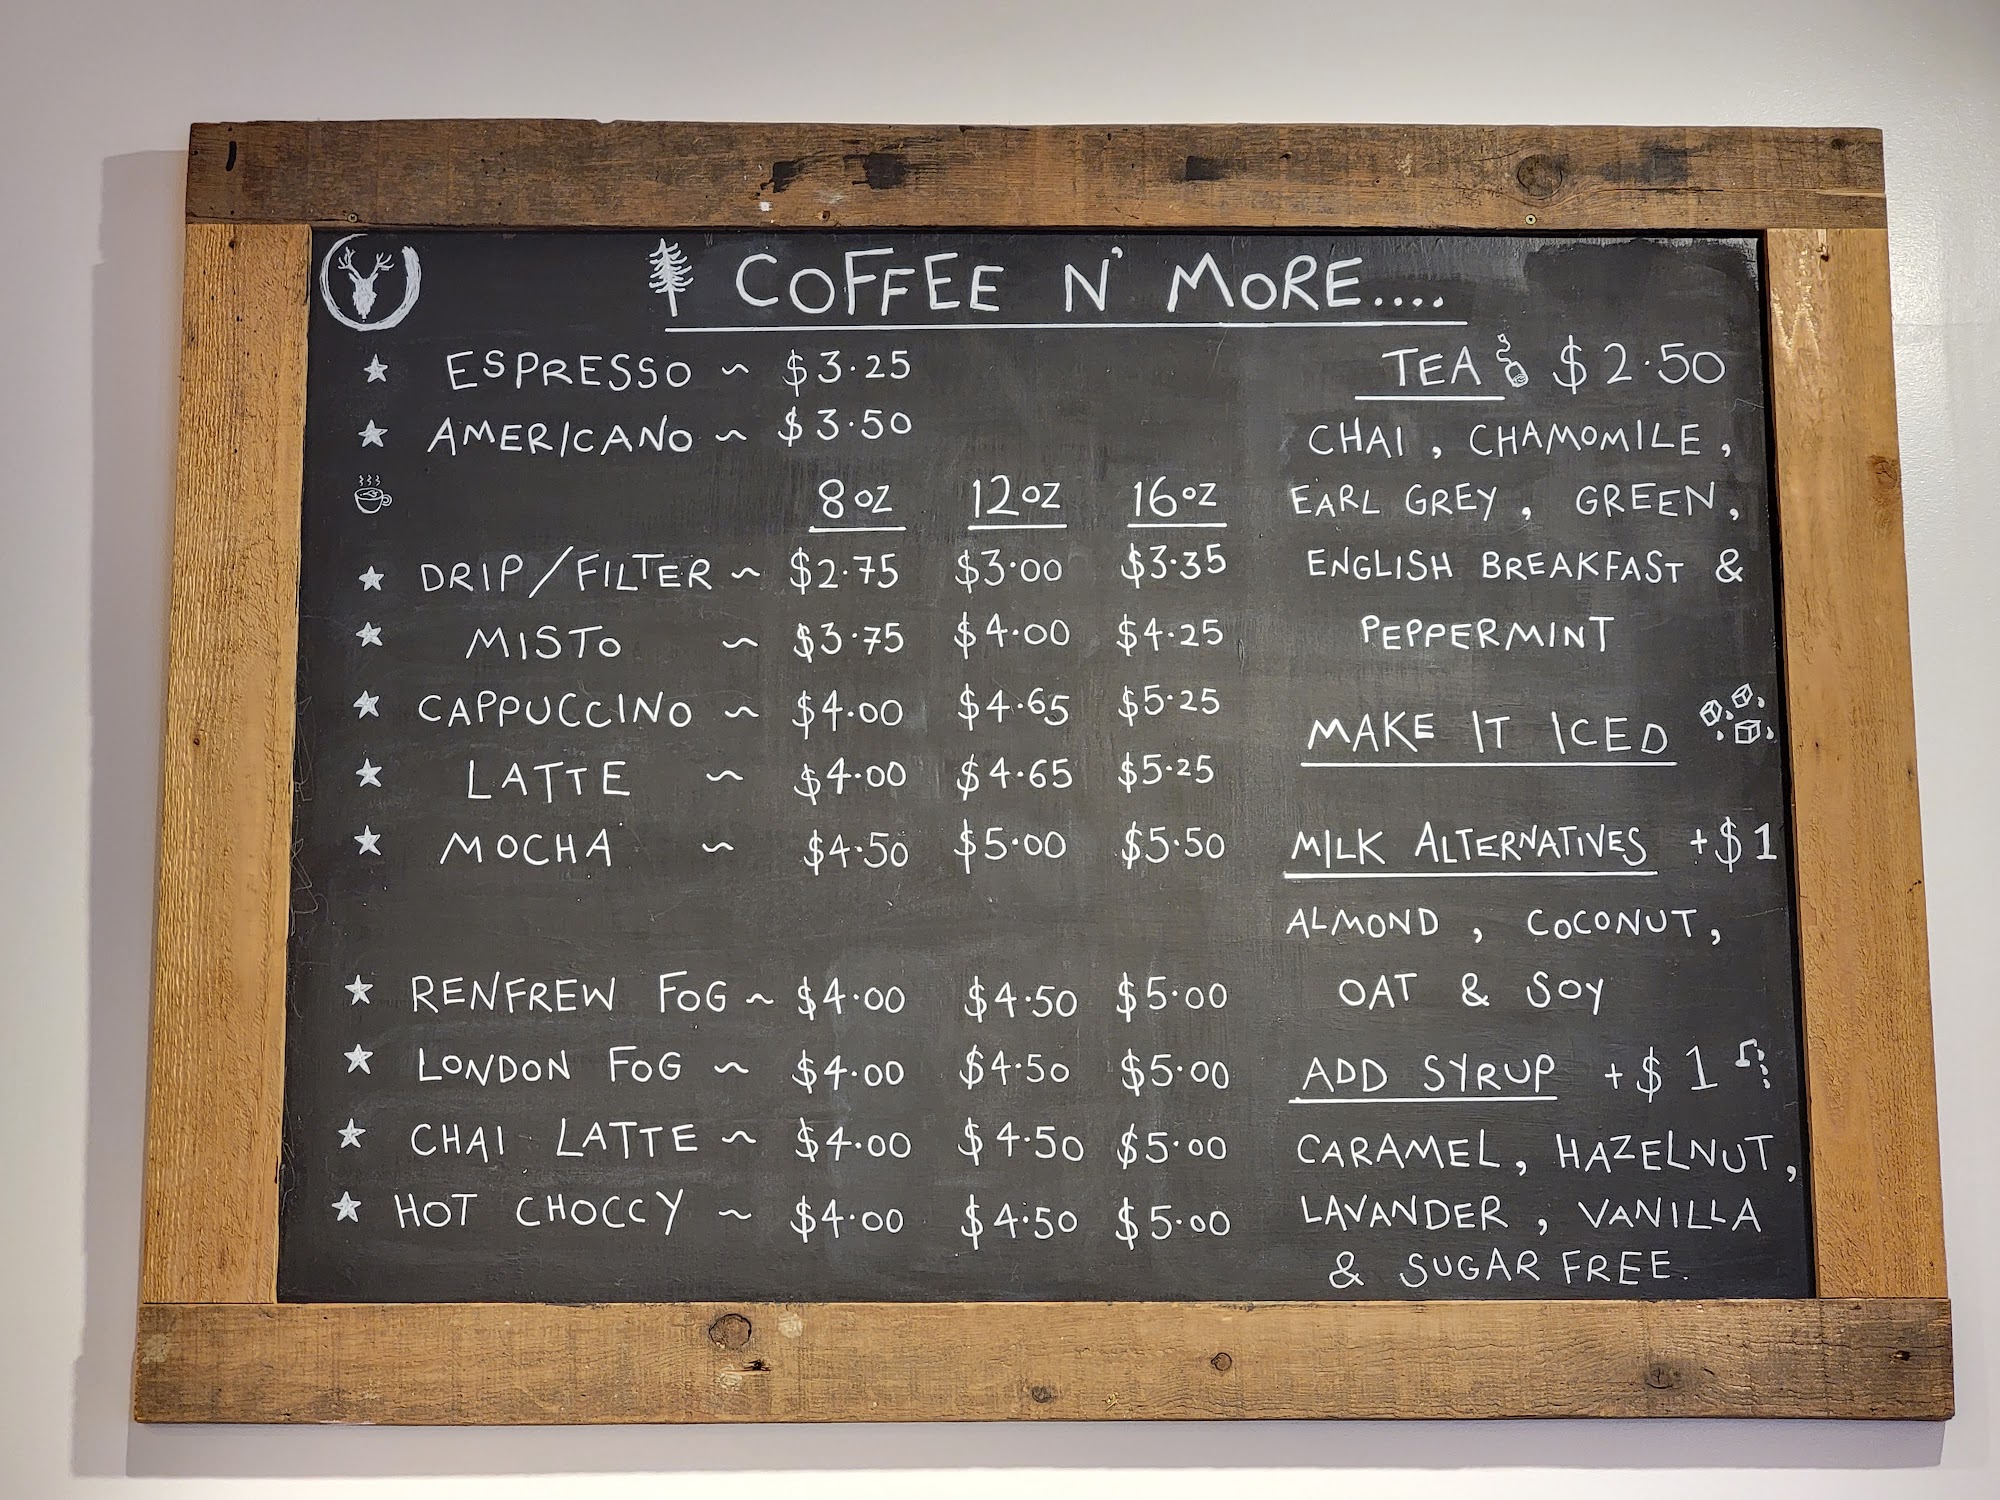 COFFEE N' MORE....
ESPRESSO ~ $3.25
AMERICANO ~ $3.50
8oz 12oz 16oz
DRIP/FILTER ~ $2.75 $3.00 $3.35
MISTO ~ $3.75 $4.00 $4.25
CAPPUCCINO ~ $4.00 $4.65 $5.25
LATTE ~ $4.00 $4.65 $5.25
MOCHA ~ $4.50 $5.00 $5.50
RENFREW FOG ~ $4.00 $4.50 $5.00
LONDON FOG ~ $4.00 $4.50 $5.00
CHAI LATTE ~ $4.00 $4.50 $5.00
HOT CHOCCY ~ $4.00 $4.50 $5.00
TEA $2.50
CHAI, CHAMOMILE,
EARL GREY, GREEN,
ENGLISH BREAKFAST &
PEPPERMINT
MAKE IT ICED
MILK ALTERNATIVES +$1
ALMOND, COCONUT,
OAT & SOY
ADD SYRUP +$1
CARAMEL, HAZELNUT,
LAVANDER, VANILLA
& SUGAR FREE.